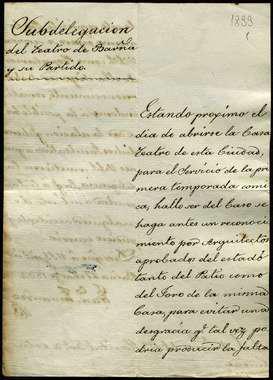 Subdelegacion
del Teatro de Barña
y su Partido.
1899
Estando proximo el
dia de abrirse la Casa
Teatro de esta Ciudad,
para el Servicio de la pri
mera temporada comi
ca, hallo ser del Caso se
haga antes un reconoci
miento por Arquitectos
aprobados del estado
tanto del Patio como
del Foro de la misma
Casa, para evitar una
desgracia qe. tal vez po
dria producir la falta